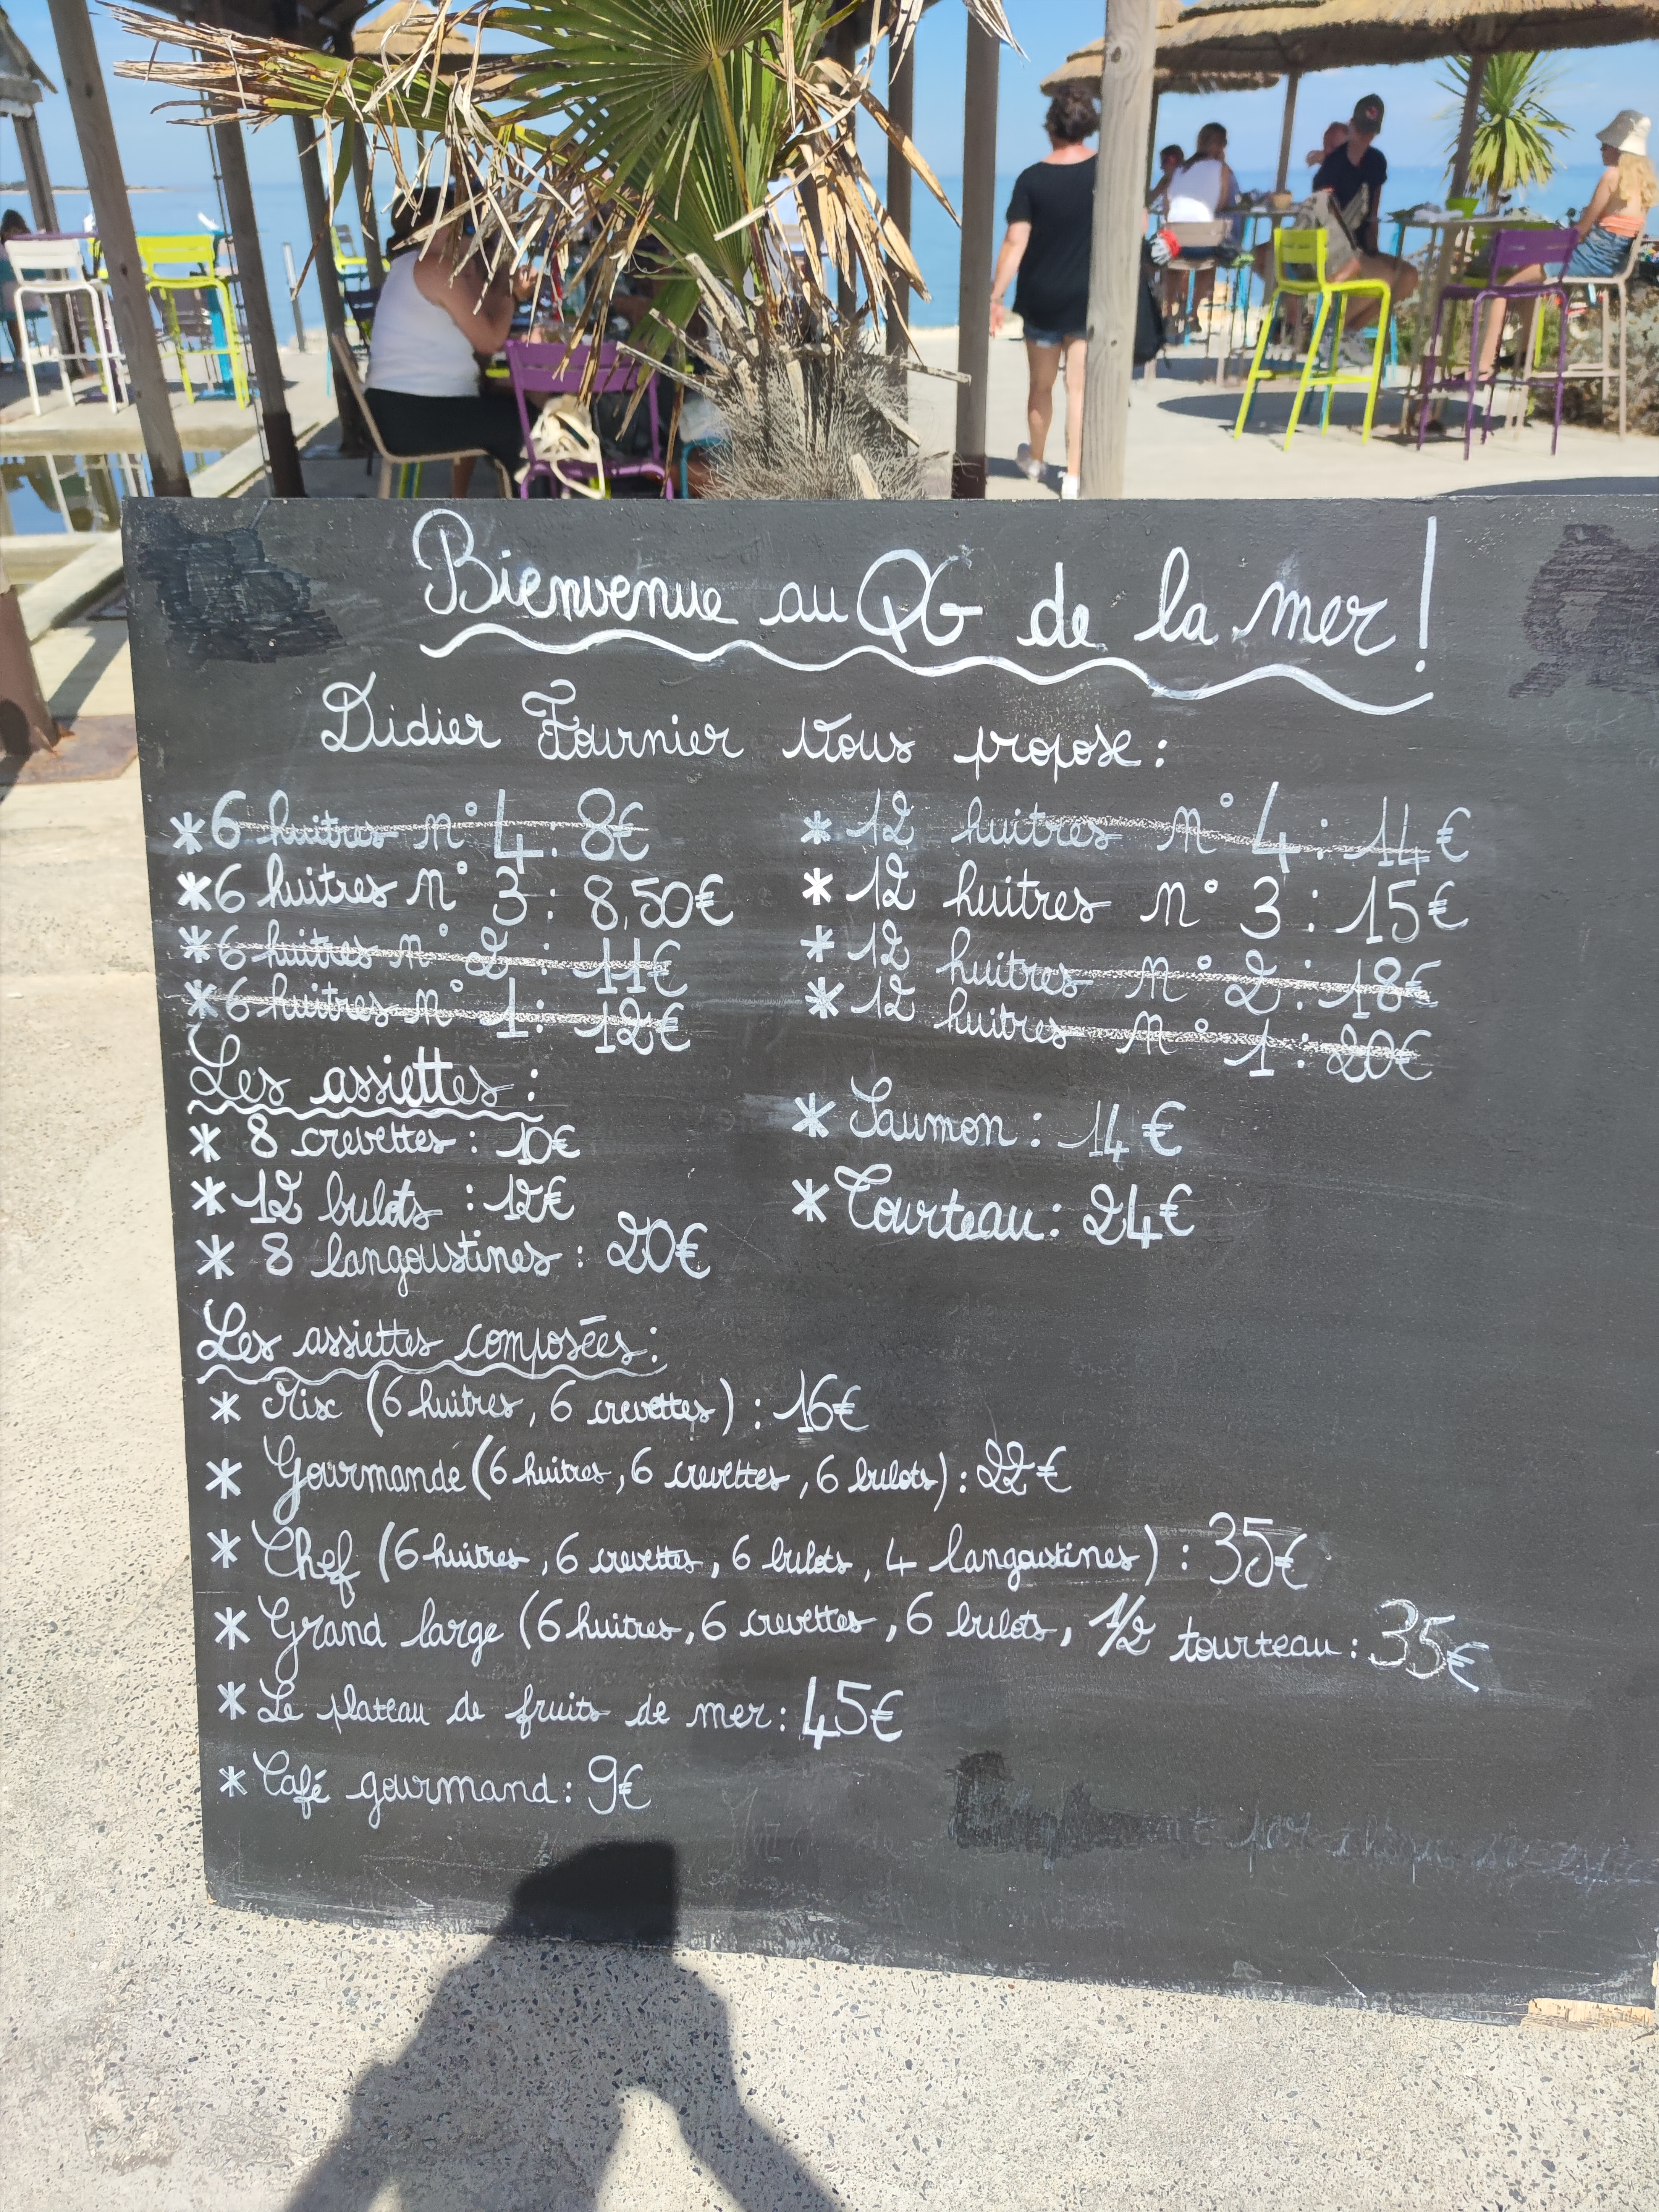 Bienvenue au QG de la mer !
Didier Fournier vous propose :
* 6 huitres n° 4 : 8€
* 6 huitres n° 3 : 8,50€
* 6 huitres n° 2 : 11€
* 6 huitres n° 1 : 12€
* 12 huitres n° 4 : 14€
* 12 huitres n° 3 : 15€
* 12 huitres n° 2 : 18€
* 12 huitres n° 1 : 20€
Les assiettes :
* 8 crevettes : 10€
* 12 bulots : 12€
* 8 langoustines : 20€
* Saumon : 14€
* Tourteau : 24€
Les assiettes composées :
* Mix (6 huitres, 6 crevettes) : 16€
* Gourmande (6 huitres, 6 crevettes, 6 bulots) : 22€
* Chef (6 huitres, 6 crevettes, 6 bulots, 4 langoustines) : 35€
* Grand large (6 huitres, 6 crevettes, 6 bulots, 1/2 tourteau : 35€
* Le plateau de fruits de mer : 45€
* Café gourmand : 9€